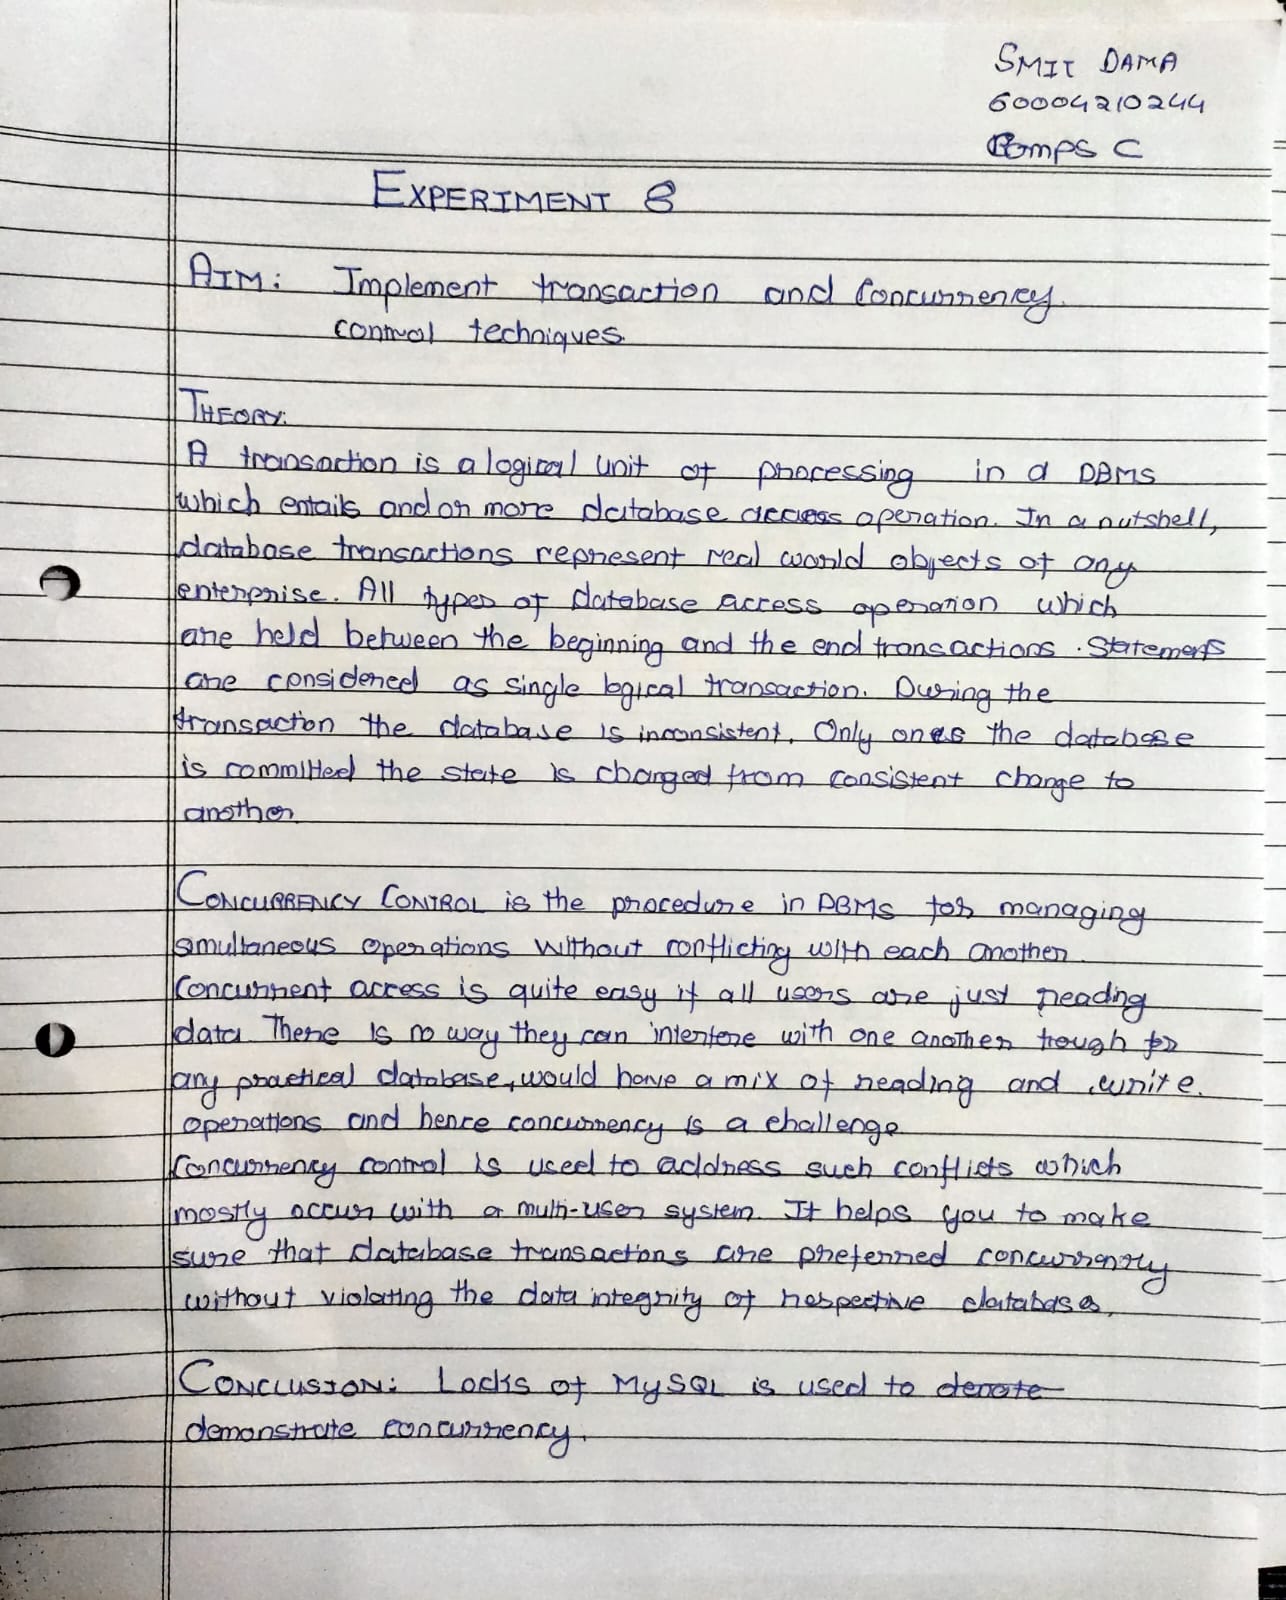 SMIT DAMA
60004210244
Comps C
EXPERIMENT 8
AIM: Implement transaction and Concurrency
control techniques.
THEORY:
A transaction is a logical unit of processing in a DBMS
which entails and or more database access operation. In a nutshell,
database transactions represent real world objects of any
enterprise. All types of database access operation which
are held between the beginning and the end transactions. Statements
are considered as single logical transaction. During the
transaction the database is inconsistent. Only ones the database
is committed the state is changed from consistent change to
another
CONCURRENCY CONTROL is the procedure in DBMS for managing
simultaneous operations without conflicting with each another.
Concurrent access is quite easy if all users are just reading
data. There is no way they can interfere with one another trough for
any practical database, would have a mix of reading and write.
operations and hence concurrency is a challenge
Concurrency control is used to address such conflicts which
mostly occur with a multi-user system. It helps you to make
sure that database transactions are preferred concurrently
without violating the data integrity of respective databases.
CONCLUSION: Locks of MySQL is used to denote
demonstrate concurrency.